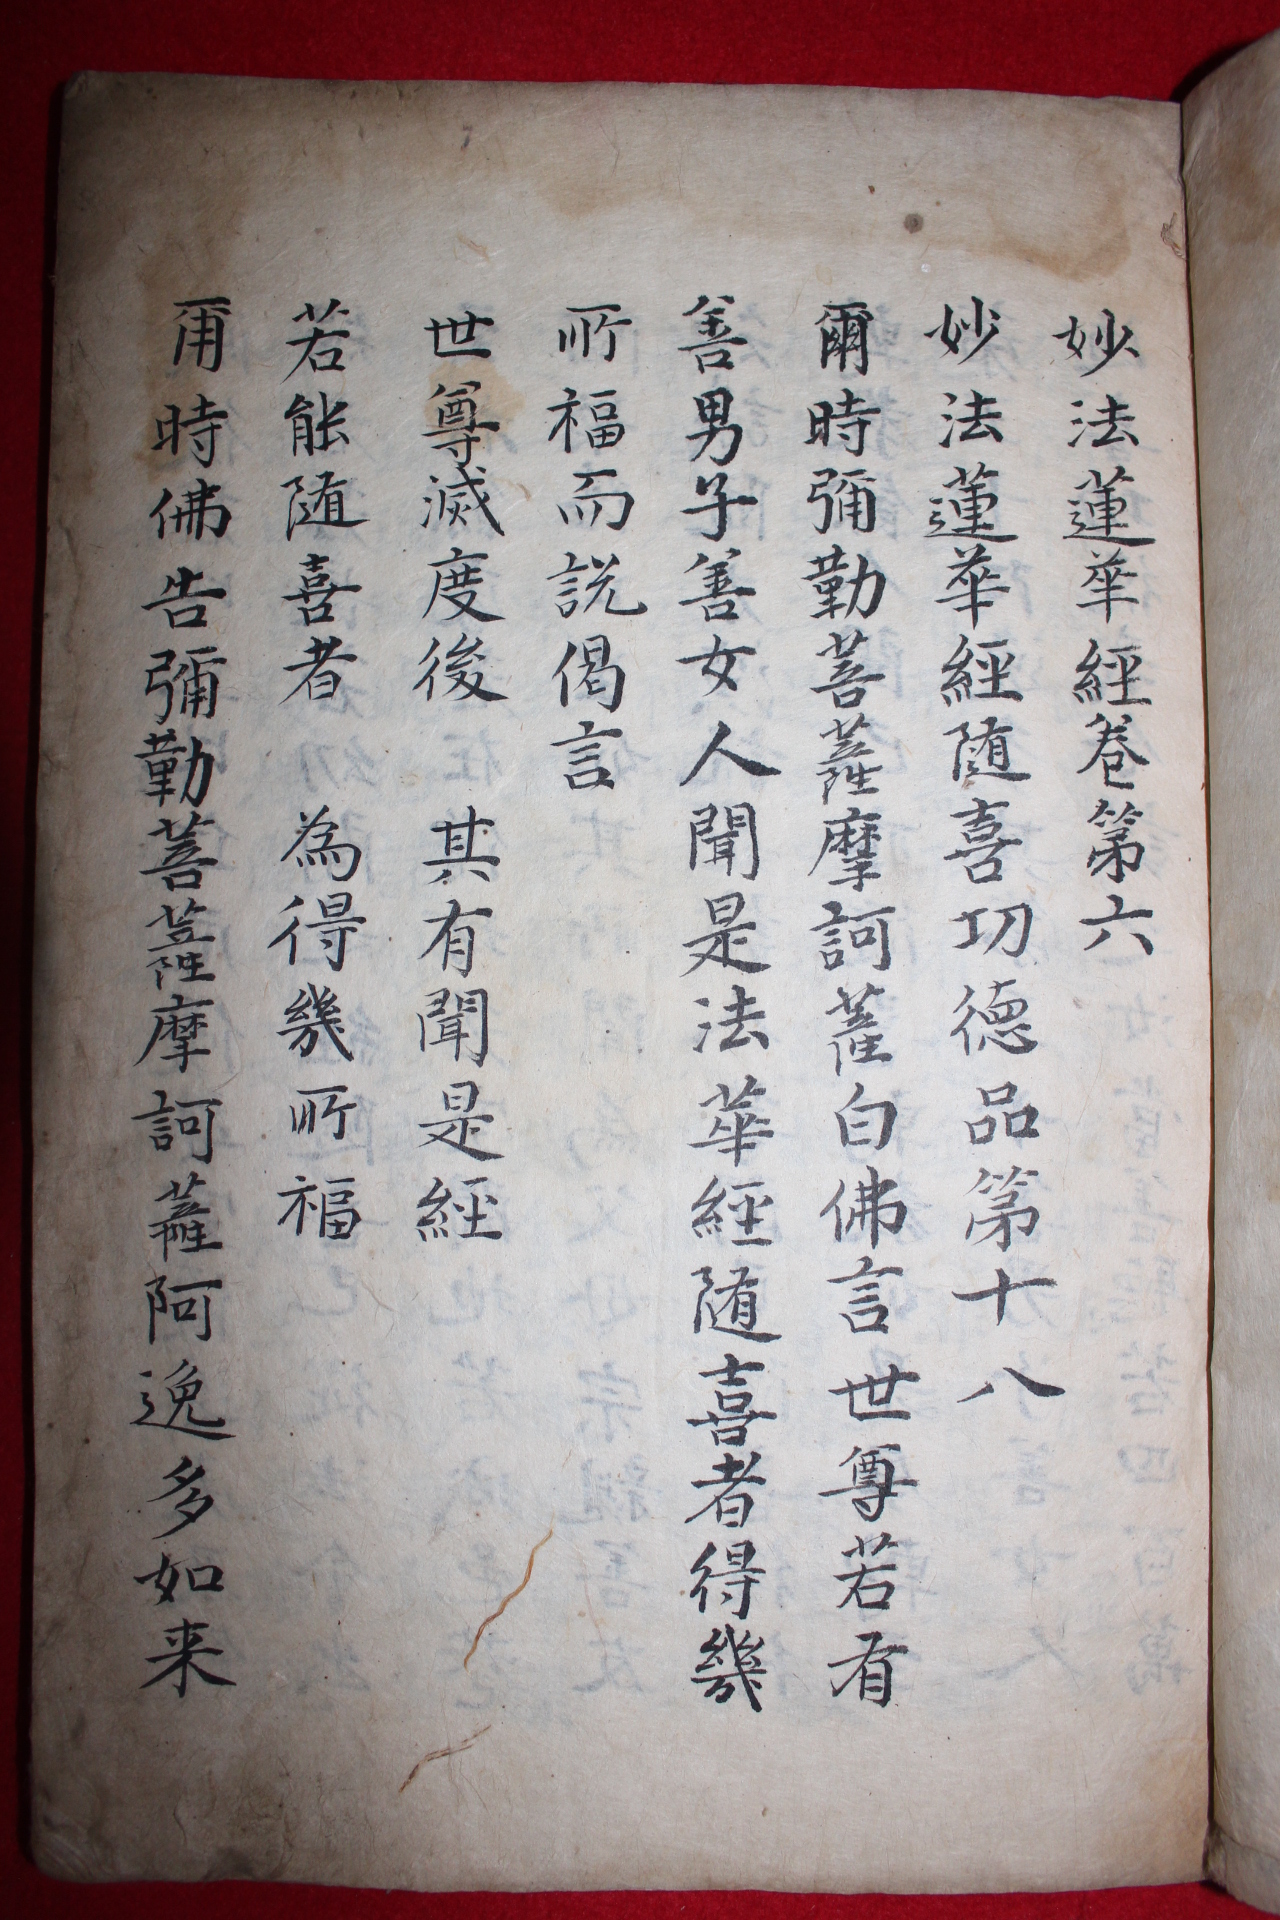 妙法蓮華經卷第六
妙法蓮華經随喜功德品第十八
爾時彌勒菩薩摩訶薩白佛言世尊若有
善男子善女人聞是法華經随喜者得幾
所福而説偈言
世尊滅度後 其有聞是經
若能随喜者 為得幾所福
爾時佛告彌勒菩薩摩訶薩阿逸多如来